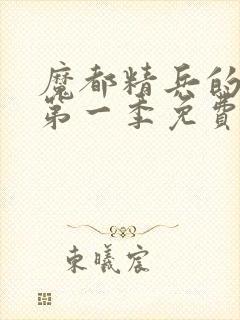 魔都精兵的
第一季免费
东曦宸